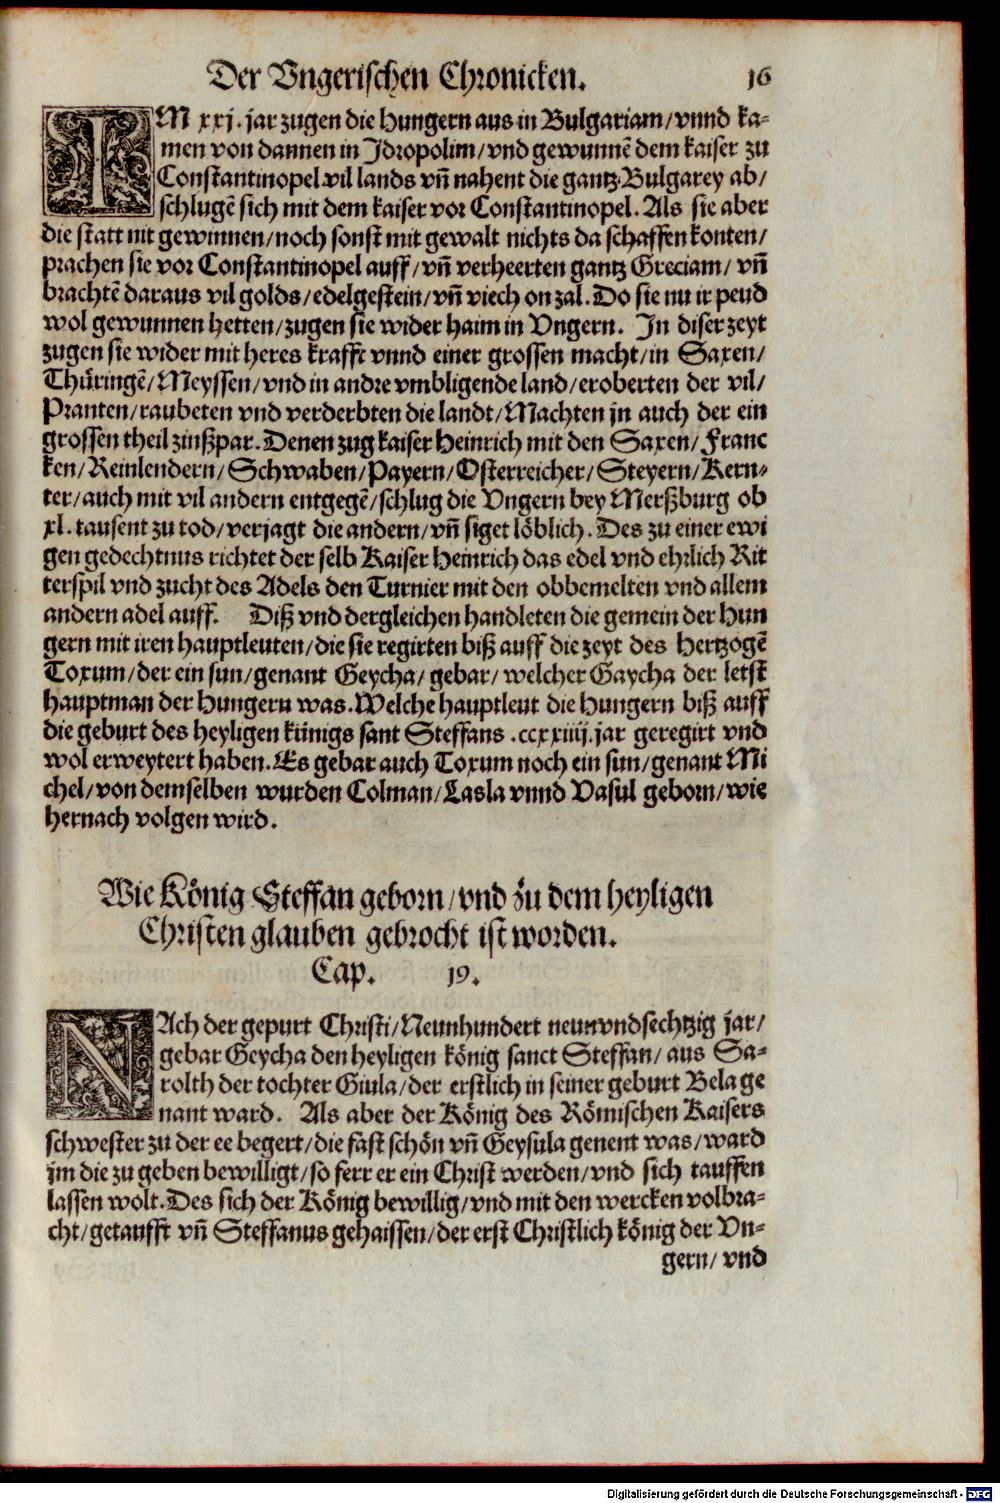 Der Vngerischen Chronicken. 16
IM xxj. jar zugen die Hungern aus in Bulgariam/ vnnd ka-
men von dannen in Jdropolim/ vnd gewunnē dem kaiser zu
Constantinopel vil lands vñ nahent die gantz Bulgarey ab/
schlugē sich mit dem kaiser vor Constantinopel. Als sie aber
die statt nit gewinnen/ noch sonst mit gewalt nichts da schaffen konten/
prachen sie vor Constantinopel auff/ vñ verheerten gantz Greciam/ vñ
brachtē daraus vil golds/ edelgestein/ vñ viech on zal. Do sie nu ir peud
wol gewunnen hetten/ zugen sie wider haim in Vngern. In diser zeyt
zugen sie wider mit heres krafft vnnd einer grossen macht/ in Saxen/
Thüringē/ Meyssen/ vnd in andre vmbligende land/ eroberten der vil/
Pranten/ raubeten vnd verderbten die landt/ Machten jn auch der ein
grossen theil zinßpar. Denen zug kaiser Heinrich mit den Saxen/ Franc
ken/ Reinlendern/ Schwaben/ Payern/ Osterreicher/ Steyern/ Kern-
ter/ auch mit vil andern entgegē/ schlug die Vngern bey Merßburg ob
xl. tausent zu tod/ verjagt die andern/ vñ siget löblich. Des zu einer ewi
gen gedechtnus richtet der selb Kaiser Heinrich das edel vnd ehrlich Rit
terspil vnd zucht des Adels den Turnier mit den obbemelten vnd allem
andern adel auff. Diß vnd dergleichen handleten die gemein der Hun
gern mit iren hauptleuten/ die sie regirten biß auff die zeyt des Hertzogē
Toxum/ der ein sun/ genant Geycha/ gebar/ welcher Gaycha der letst
hauptman der Hungern was. Welche hauptleut die Hungern biß auff
die geburt des heyligen künigs sant Steffans .ccxxiiij. jar geregirt vnd
wol erweytert haben. Es gebar auch Toxum noch ein sun/ genant Mi
chel/ von demselben wurden Colman/ Lasla vnnd Vasul geborn/ wie
hernach volgen wird.
Wie König Steffan geborn/ vnd zu dem heyligen
Christen glauben gebrocht ist worden.
Cap. 19.
NAch der gepurt Christi/ Neunhundert neunvndsechtzig jar/
gebar Geycha den heyligen könig sanct Steffan/ aus Sa-
rolth der tochter Giula/ der erstlich in seiner geburt Bela ge
nant ward. Als aber der König des Römischen Kaisers
schwester zu der ee begert/ die fast schön vñ Geysula genent was/ ward
jm die zu geben bewilligt/ so ferr er ein Christ werden/ vnd sich tauffen
lassen wolt. Des sich der König bewillig/ vnd mit den wercken volbra-
cht/ getaufft vñ Steffanus gehaissen/ der erst Christlich könig der Vn-
gern/ vnd
Digitalisierung gefördert durch die Deutsche Forschungsgemeinschaft - DFG